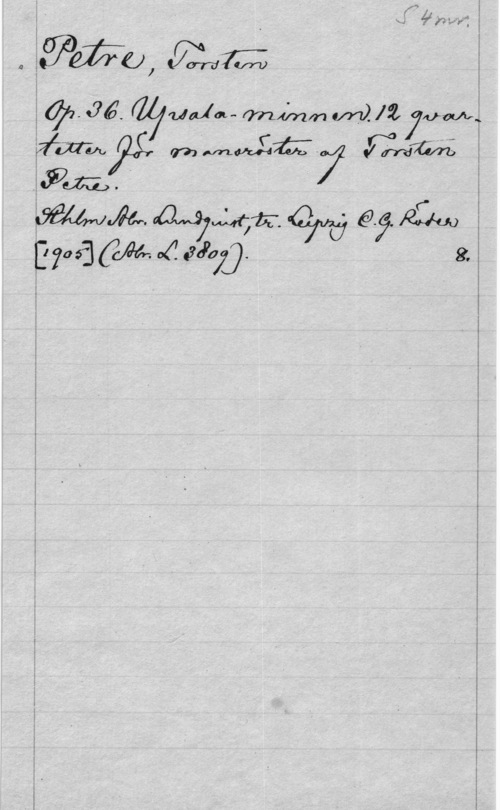 S 4 mr.
Petre, Torsten
Op. 36. Upsala-minnen. 12 quar-
tetter för mansröster af Torsten
Petre.
Sthlm Abr. Lundquist, tr. Leipzig C. G. Röder
[1905] (Abr. L. 3809). 8.